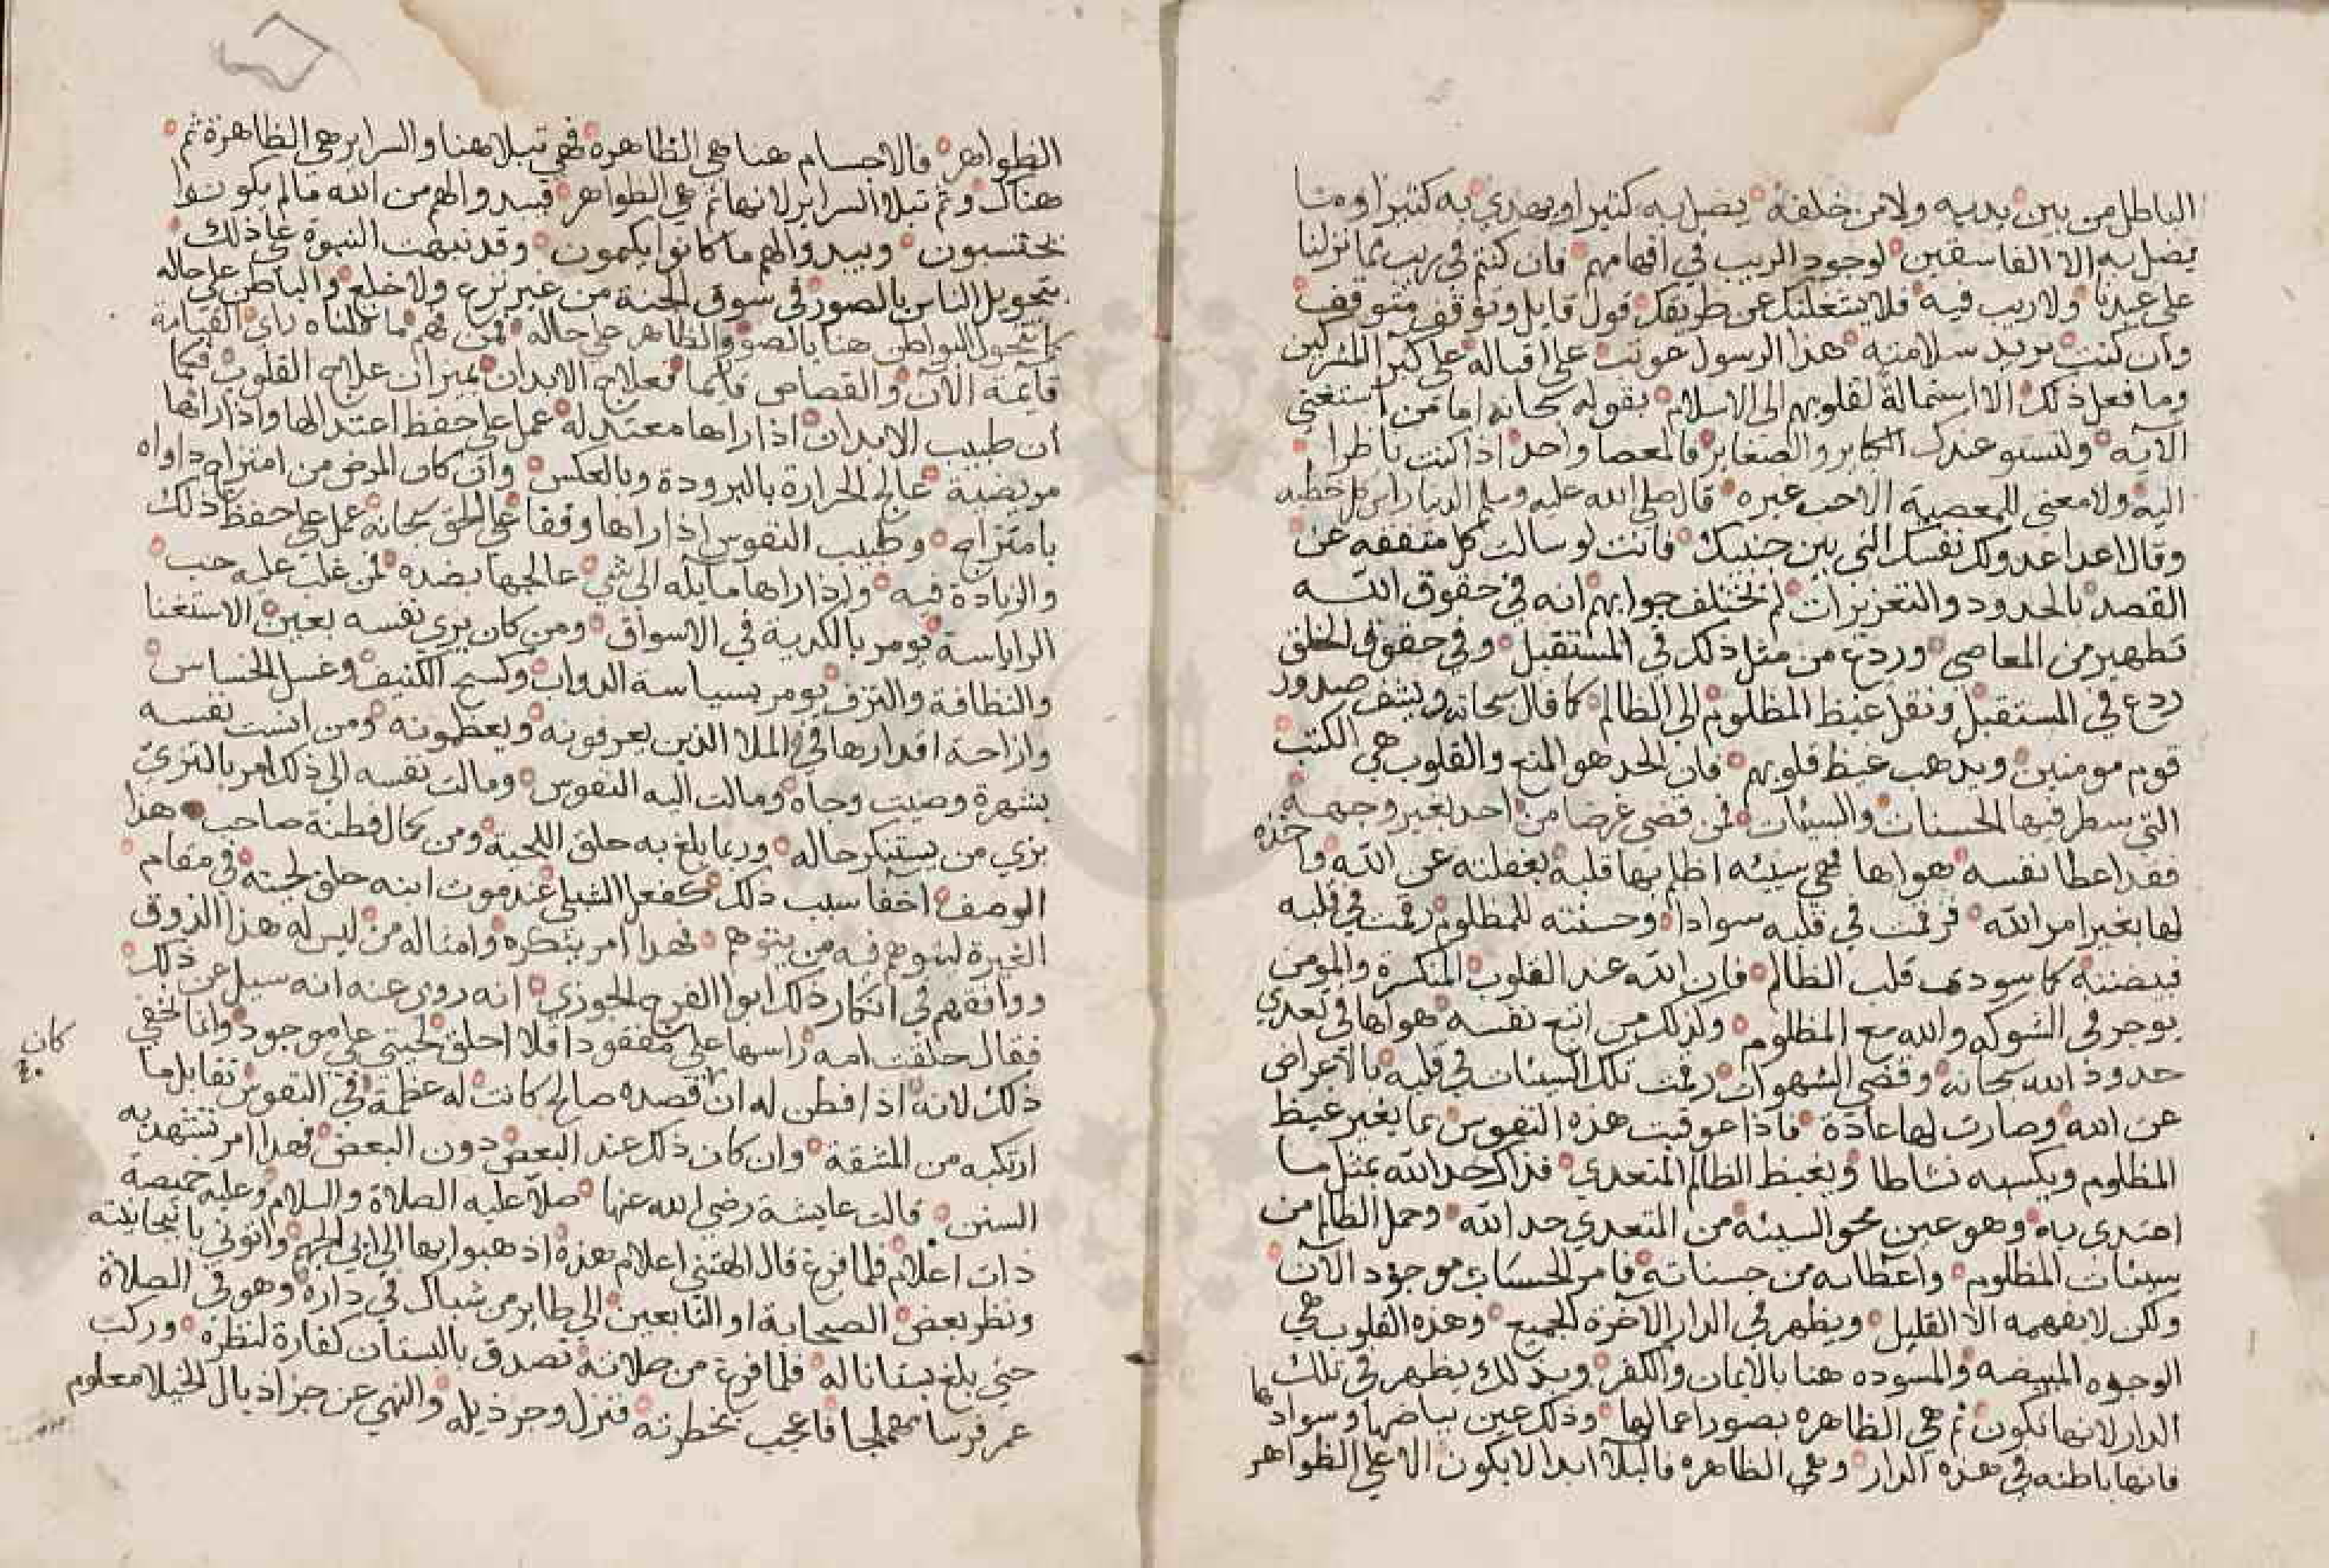 الباطل من بين يديه ولا من خلفه يضل به كثيرا ويهدي به كثيرا وما
يضل به الا الفاسقين لوجود الريب في افهامهم فان كنتم في ريب مما نزلنا
على عبدنا ولا ريب فيه فلا يشغلنك عن طريقك قول قايل وتوقف متوقف
وان كنت تريد سلامته هذا الرسول عوتب على اقباله على كبرا المشركين
وما فعل ذلك الا استمالة لقلوبهم الى الاسلام بقوله سبحانه اما من استغنى
الآية ولتستو عندك الكباير والصغاير فالمعصا واحد اذا كنت ناظرا
اليه ولا معنى للمعصية الا حب غيره قال صلى الله عليه وسلم الدنيا راس كل خطيه
وقال اعدا عدوك نفسك التي بين جنبيك فانت لو سالت كل متفقه عن
القصد بالحدود والتعزيرات لم تختلف جوابهم انه في حقوق الله
تطهير من المعاصي وردع من مثل ذلك في المستقبل وفي حقوق الخلق
ردع في المستقبل ونقل غيظ المظلوم الى الظالم كما قال سبحانه ويشف صدور
قوم مومنين ويذهب غيظ قلوبهم فان الحد هو المنع والقلوب هي الكتب
التي سطر فيها الحسنات والسيئات فمن قضى غرضا من احد بغير وجهه
فقد اعطا نفسه هواها فهي سيئه اظلم بها قلبه بغفلته عن الله واخذه
لها بغير امر الله فرقمت في قلبه سوادا وحسنته للمظلوم رقمت في قلبه
فبيضته كما سودت قلب الظالم فان الله عند القلوب المنكسرة والمومن
يوجر في الشوكه والله مع المظلوم وكذلك من اتبع نفسه هواها في تعدي
حدود الله سبحانه وقضى الشهوات رقمت تلك السيئات في قلبه بالاعراض
عن الله وصارت لها عادة فاذا عوقبت هذه النفوس بما يغير غيظ
المظلوم ويكسبه نشاطا ويغيظ الظالم المتعدي فذاك حد الله بمثل ما
اعتدى به وهو عين محو السيئه من المتعدي حد الله وحمل الظالم من
سيئات المظلوم واعطايه من حسناته فامر الحساب موجود الآن
ولكن لا يفهمه الا القليل ويظهر في الدار الآخرة للجميع وهذه القلوب هي
الوجوه المبيضه والمسوده هنا بالايمان والكفر وبذلك يظهر في تلك
الدار لانها تكون ثم هي الظاهره بصور اعمالها وذلك عين بياضها وسوادها
فانها باطنه في هذه الدار وهي الظاهره فالبلا ابدا لا يكون الا على الظواهر
الظواهر فالاجسام هنا هي الظاهره فهي تبلا هنا والسراير هي الظاهرة ثم
هناك وثم تبلا السراير لانها ثم هي الظواهر فيبدوا لهم من الله ما لم يكونوا
يحتسبون ويبدوا لهم ما كانوا يكتمون وقد نبهت النبوة على ذلك
بتحويل الناس بالصور في سوق الجنة من غير نزع ولا خلع والباطن على حاله
كما تتحول البواطن هنا بالصور والظاهر على حاله فمن فهم ما قلناه راى القيامة
قايمة الآن والقصاص قايما فعلاج الابدان بميزان علاج القلوب فكما
ان طبيب الابدان اذا راها معتدله عمل على حفظ اعتدالها واذا راها
مريضة عالج الحرارة بالبرودة وبالعكس وان كان المرض من امتزاج داواه
بامتزاج وطبيب النفوس اذا راها وقفا على الحق سبحانه عمل على حفظ ذلك
والزيادة فيه واذا راها مايله الى شي عالجها بضده فمن غلب عليه حب
الراياسة يومر بالكدية في الاسواق ومن كان يرى نفسه بعين الاستغنا
والنظافة والترف يومر بسياسة الدواب وكسح الكنيف وغسل الخساس
وازاحة اقدارها في الملا الذين يعرفونه ويعظمونه ومن انست نفسه
بشهرة وصيت وجاه ومالت اليه النفوس ومالت نفسه الى ذلك امر بالتزي
بزي من يستنكر حاله وربما بلغ به حلق اللحية ومن كمال فطنة صاحب هذا
الوصف اخفا سبب ذلك كفعل الشبلي عند موت ابنه حلق لحيته في مقام
الغيرة ليتوهم فيه من يتوهم فهذا امر ينكره وامثاله من ليس له هذا الذوق
ووافقهم في انكار ذلك ابوا الفرج الجوزي انه روى عنه انه سيل عن ذلك
فقال حلقت امه راسها على مفقود افلا احلق لحيتي على موجود وانما اخفي
ذلك لانه اذا فطن له ان قصده صالح كانت له عظمة في النفوس تقابل ما
كان
ارتكبه من المشقة وان كان ذلك عند البعض دون البعض فهذا امر تشهد به
السنن قالت عايشة رضي الله عنها صلا عليه الصلاة والسلام وعليه خميصة
ذات اعلام فلما فرغ قال الهتني اعلام هذه اذهبوا بها الى ابي الجهم واتوني بانبجانيته
ونظر بعض الصحابة او التابعين الى طاير من شباك في داره وهو في الصلاة
حتى بلغ بستانا له فلما فرغ من صلاته تصدق بالبستان كفارة لنظره وركب
عمر فرسا هملاجا فاعجب بخطرته فنزل وجر ذيله والنهي عن جر اذيال الخيلا معلوم